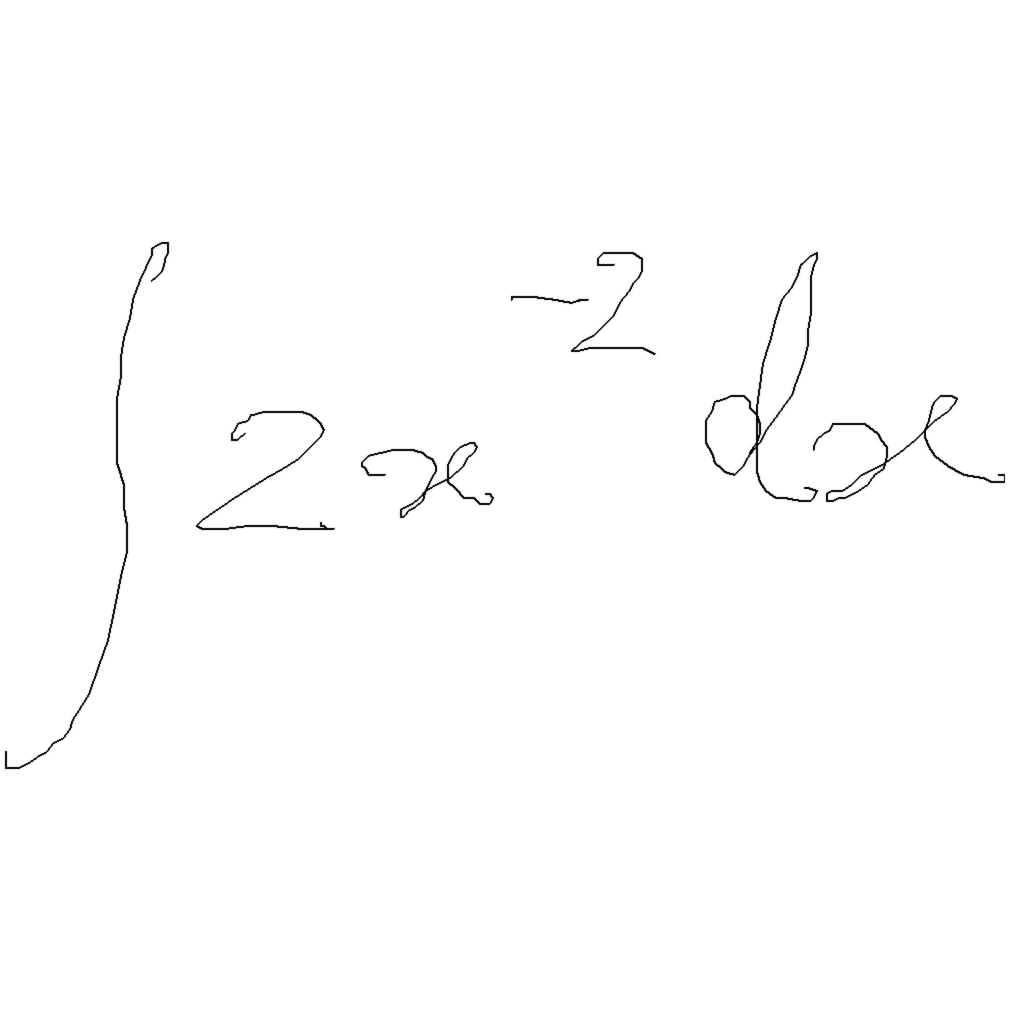 ∫2x⁻²dx